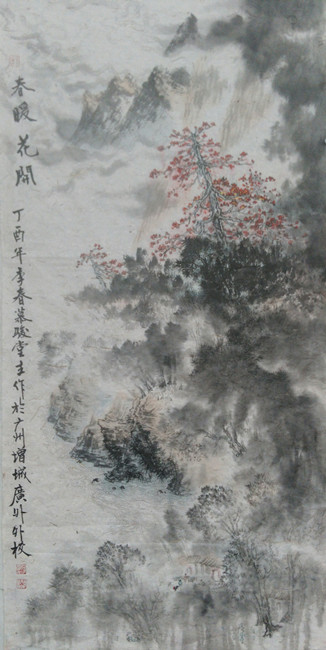 春暖花開
丁酉年季春慕陵堂主作於广州增城廣外外校